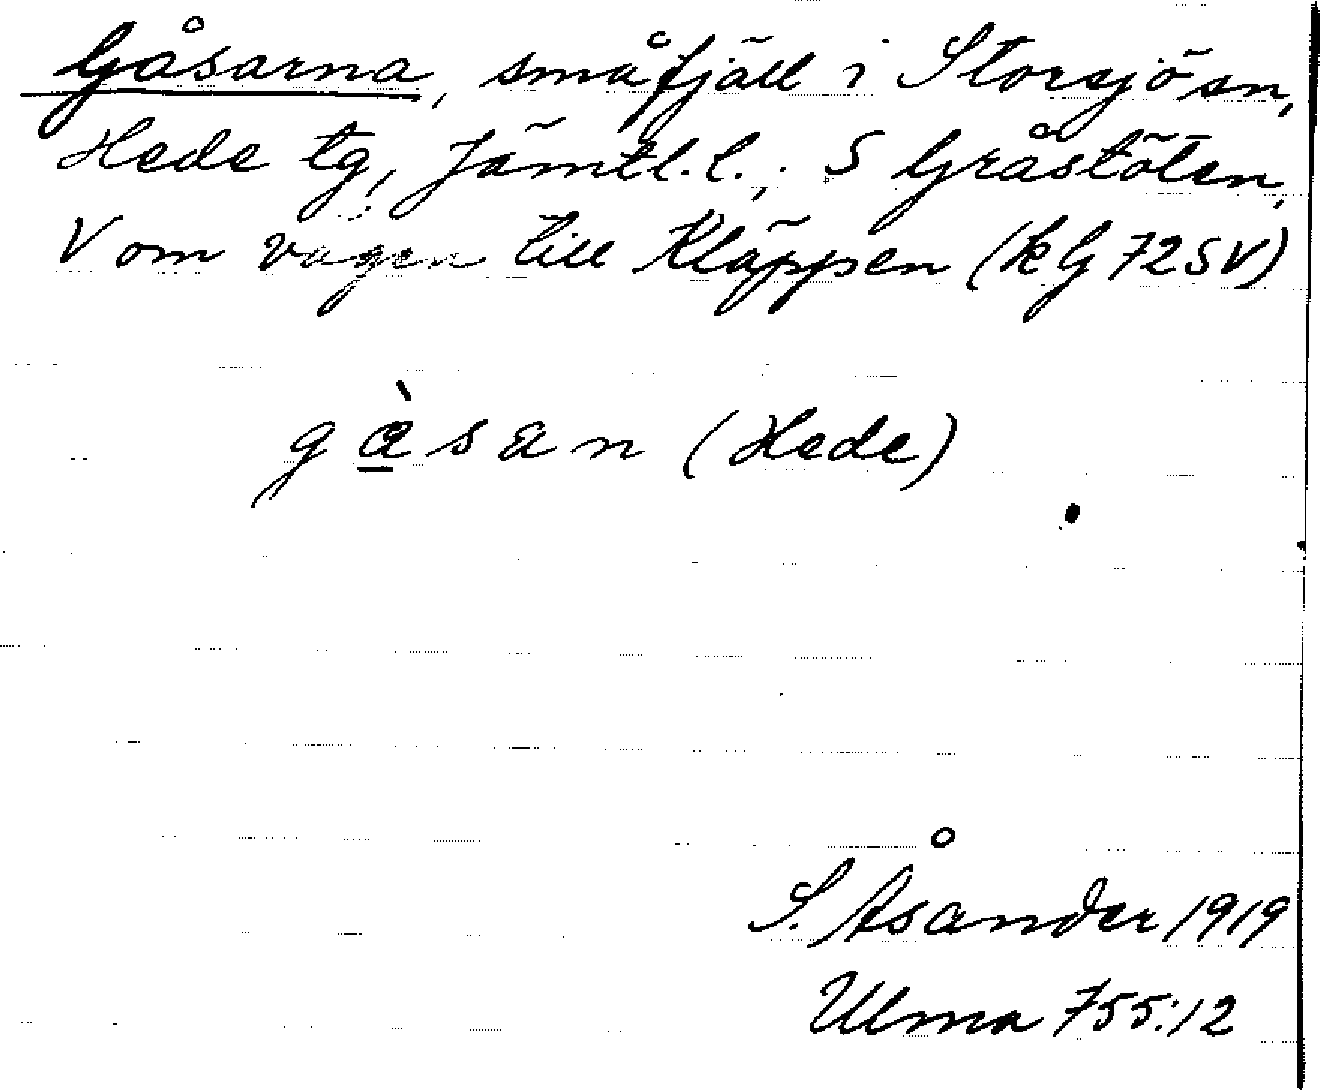 Gåsarna, småfjäll i Storsjö sn,
Hede tg, Jämtl.l., S Gråstöten,
V om vägen till Kläppen (kG 72SV)
gàsan (Hede)
S. Åsander 1919
Ulma 755:12